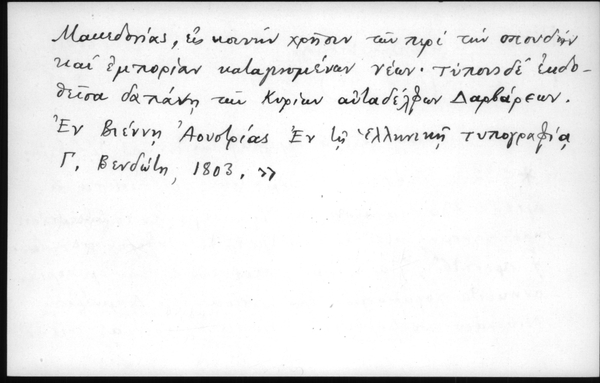 Μακεδονίας, εἰς κοινὴν χρῆσιν τῶν περὶ τὴν σπουδὴν
καὶ ἐμπορίαν καταγινομένων νέων· τύποις δὲ ἐκδο-
θεῖσα δαπάνῃ τῶν Κυρίων αὐταδέλφων Δαρβάρεων.
Ἐν Βιέννῃ Ἀουστρίας Ἐν τῇ Ἑλληνικῇ τυπογραφίᾳ
Γ. Βενδώτη, 1803. »